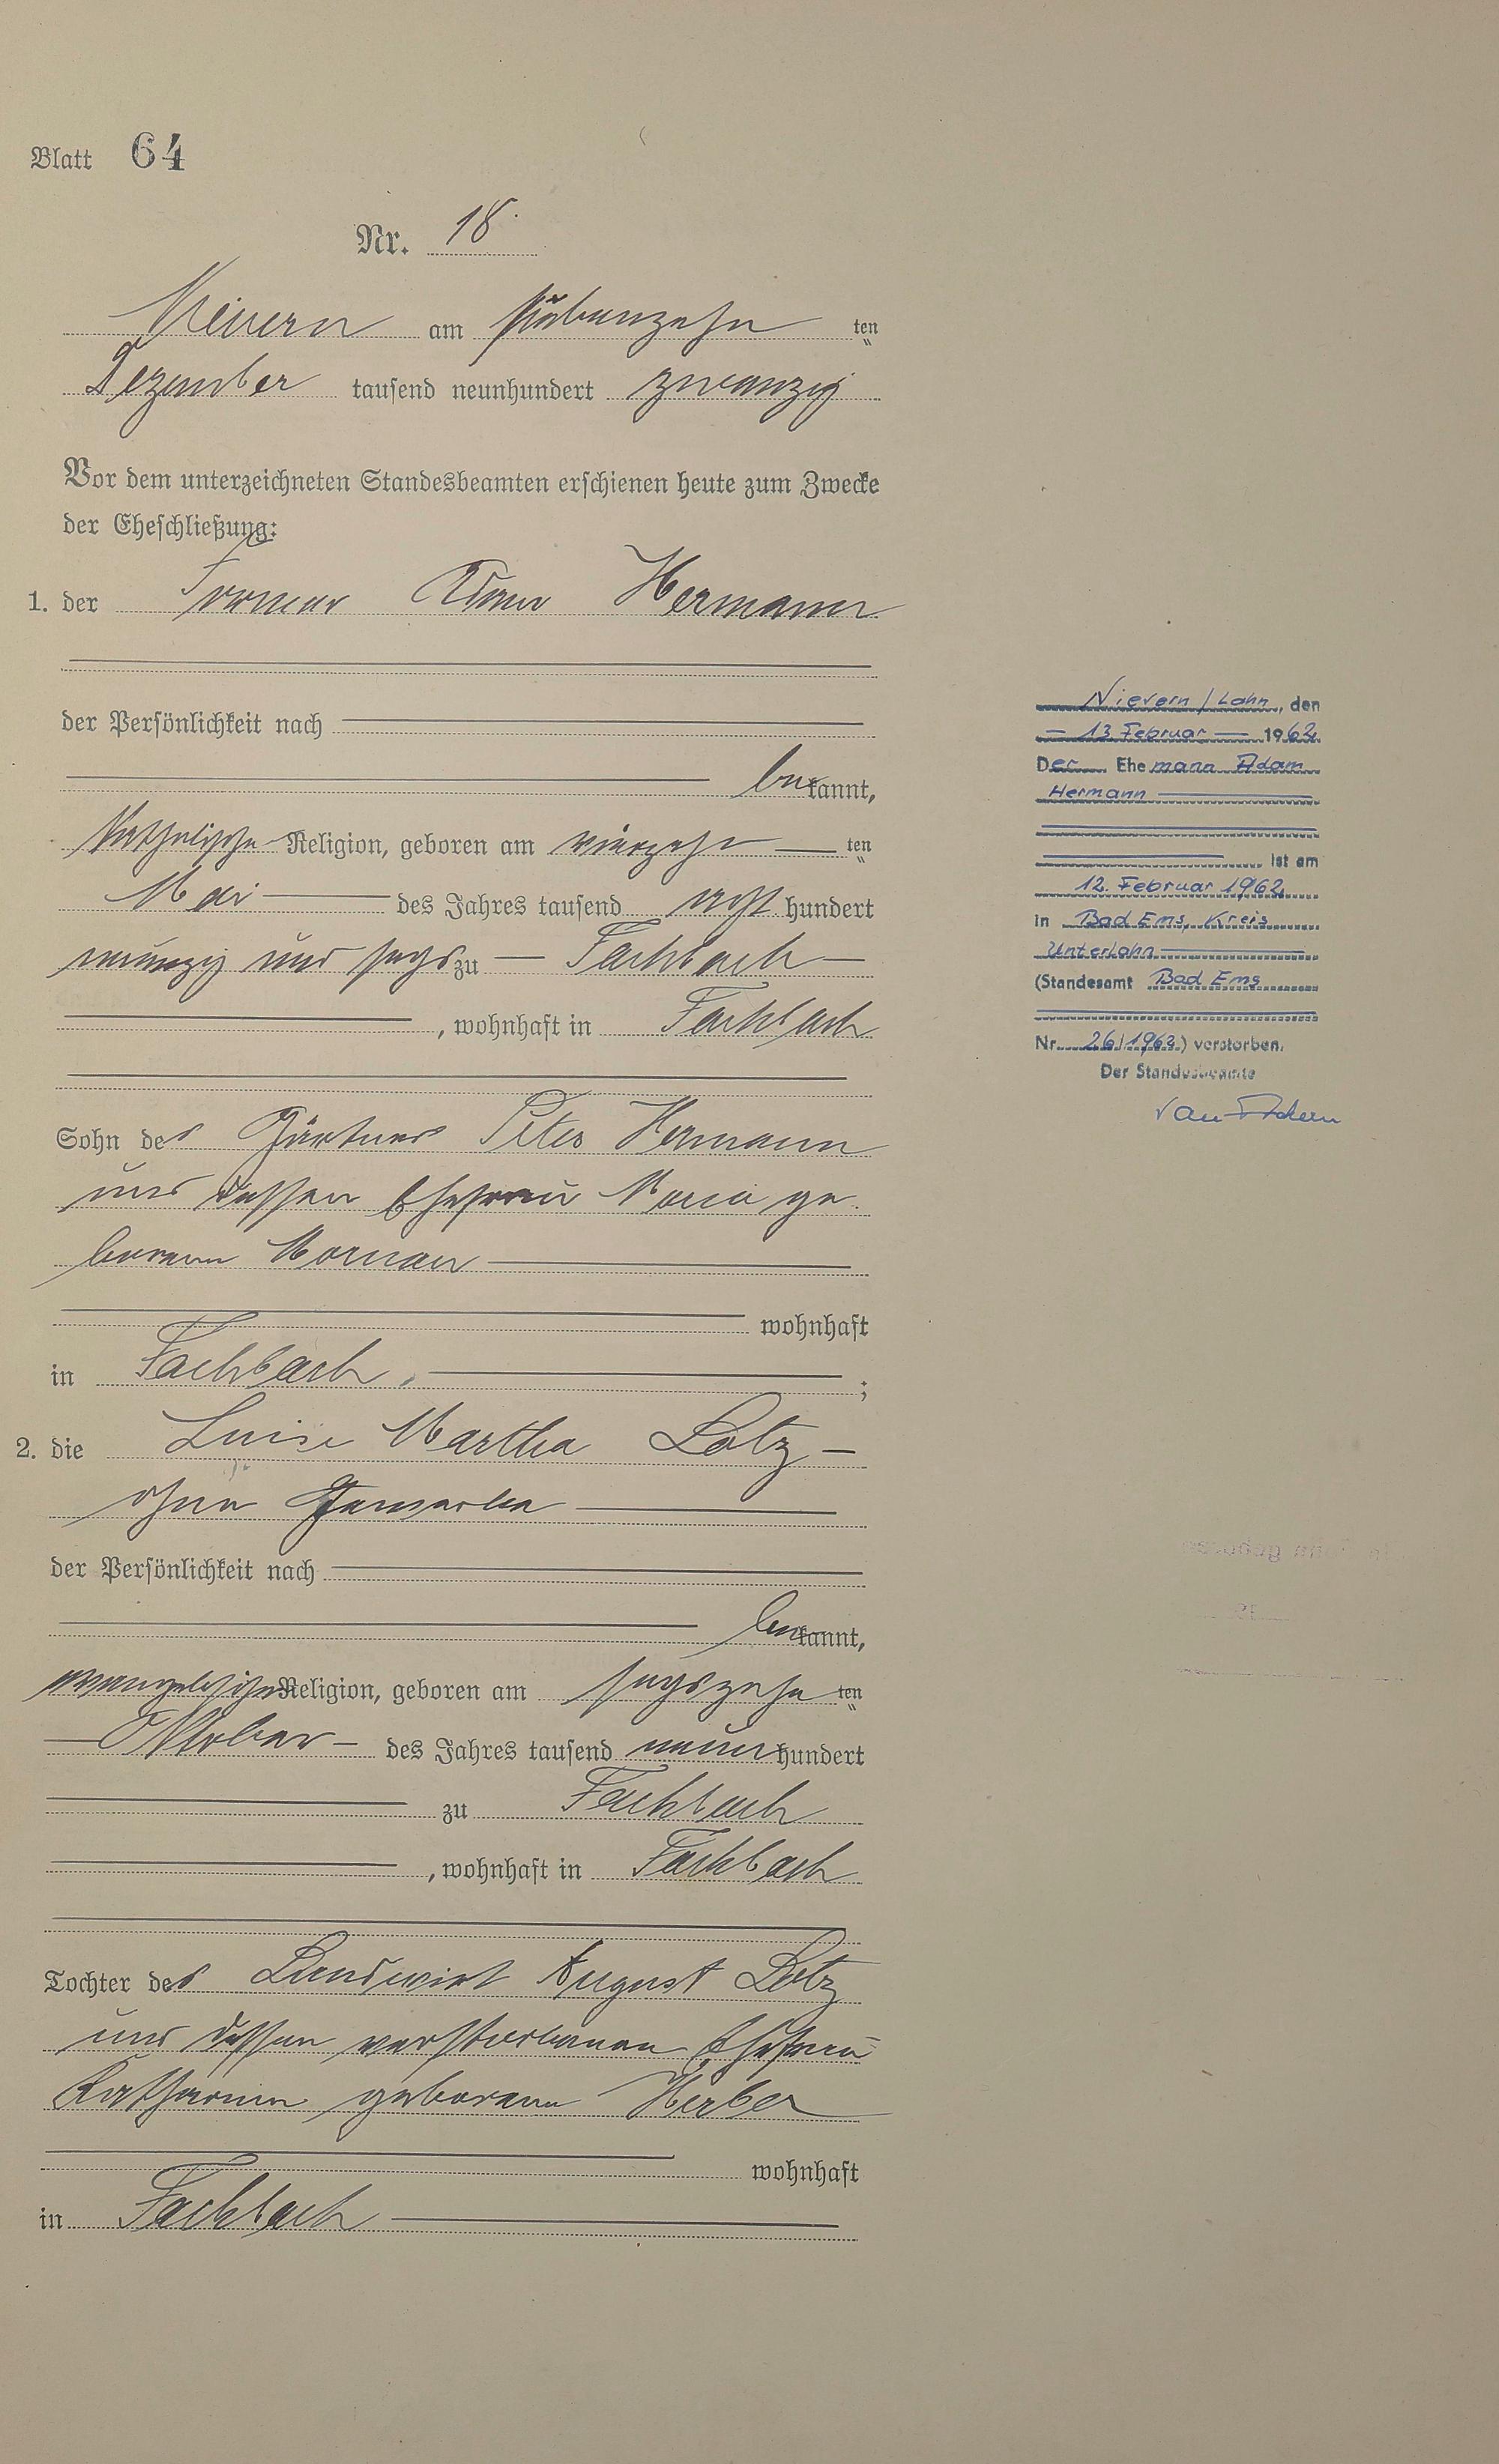 Blatt 64
Nr. 18
Nievern am siebenzehn ten
Dezember tausend neunhundert zwanzig
Vor dem unterzeichneten Standesbeamten erschienen heute zum Zwecke
der Eheschließung:
1. der Former Adam Hermann
der Persönlichkeit nach
bekannt,
katholische Religion, geboren am vierzehn ten
Mai des Jahres tausend acht hundert
neunzig und sechs zu Fachbach
, wohnhaft in Fachbach
Sohn des Gärtners Peter Hermann
und dessen Ehefrau Maria ge-
borene
wohnhaft
in Fachbach. ;
2. die Luise Martha Lotz
ohne Gewerbe
der Persönlichkeit nach
bekannt,
evangelische Religion, geboren am sechszehn ten
Oktober des Jahres tausend neun hundert
zu Fachbach
, wohnhaft in Fachbach
Tochter des Landwirt August Lotz
und dessen verstorbenen Ehefrau
Katharina geborene Herber
wohnhaft
in Fachbach
Nievern/Lahn, den
13. Februar 1962
Der Ehemann Adam
Hermann
ist am
12. Februar 1962
in Bad Ems, Kreis
Unterlahn
(Standesamt Bad Ems
Nr. 26/1962) verstorben.
Der Standesbeamte